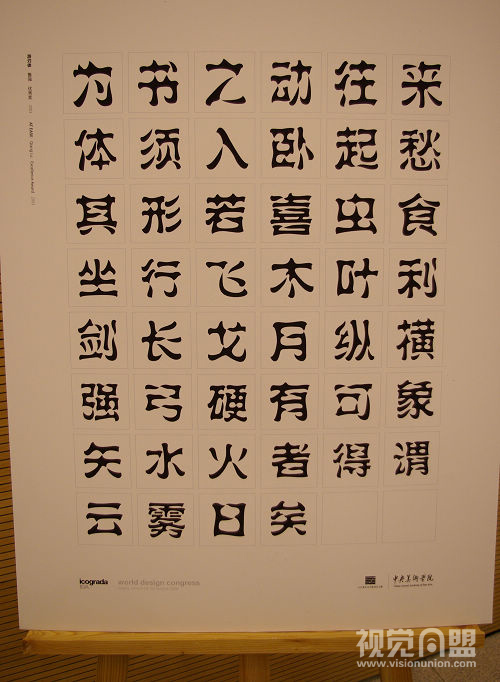 为书之动往来
体须入卧起愁
其形若喜虫食
坐行飞木叶利
剑长戈月纵横
强弓硬有可象
矢水火者得谓
云雾日矣
icograda
world design congress
中央美术学院
视觉同盟
www.visionunion.com